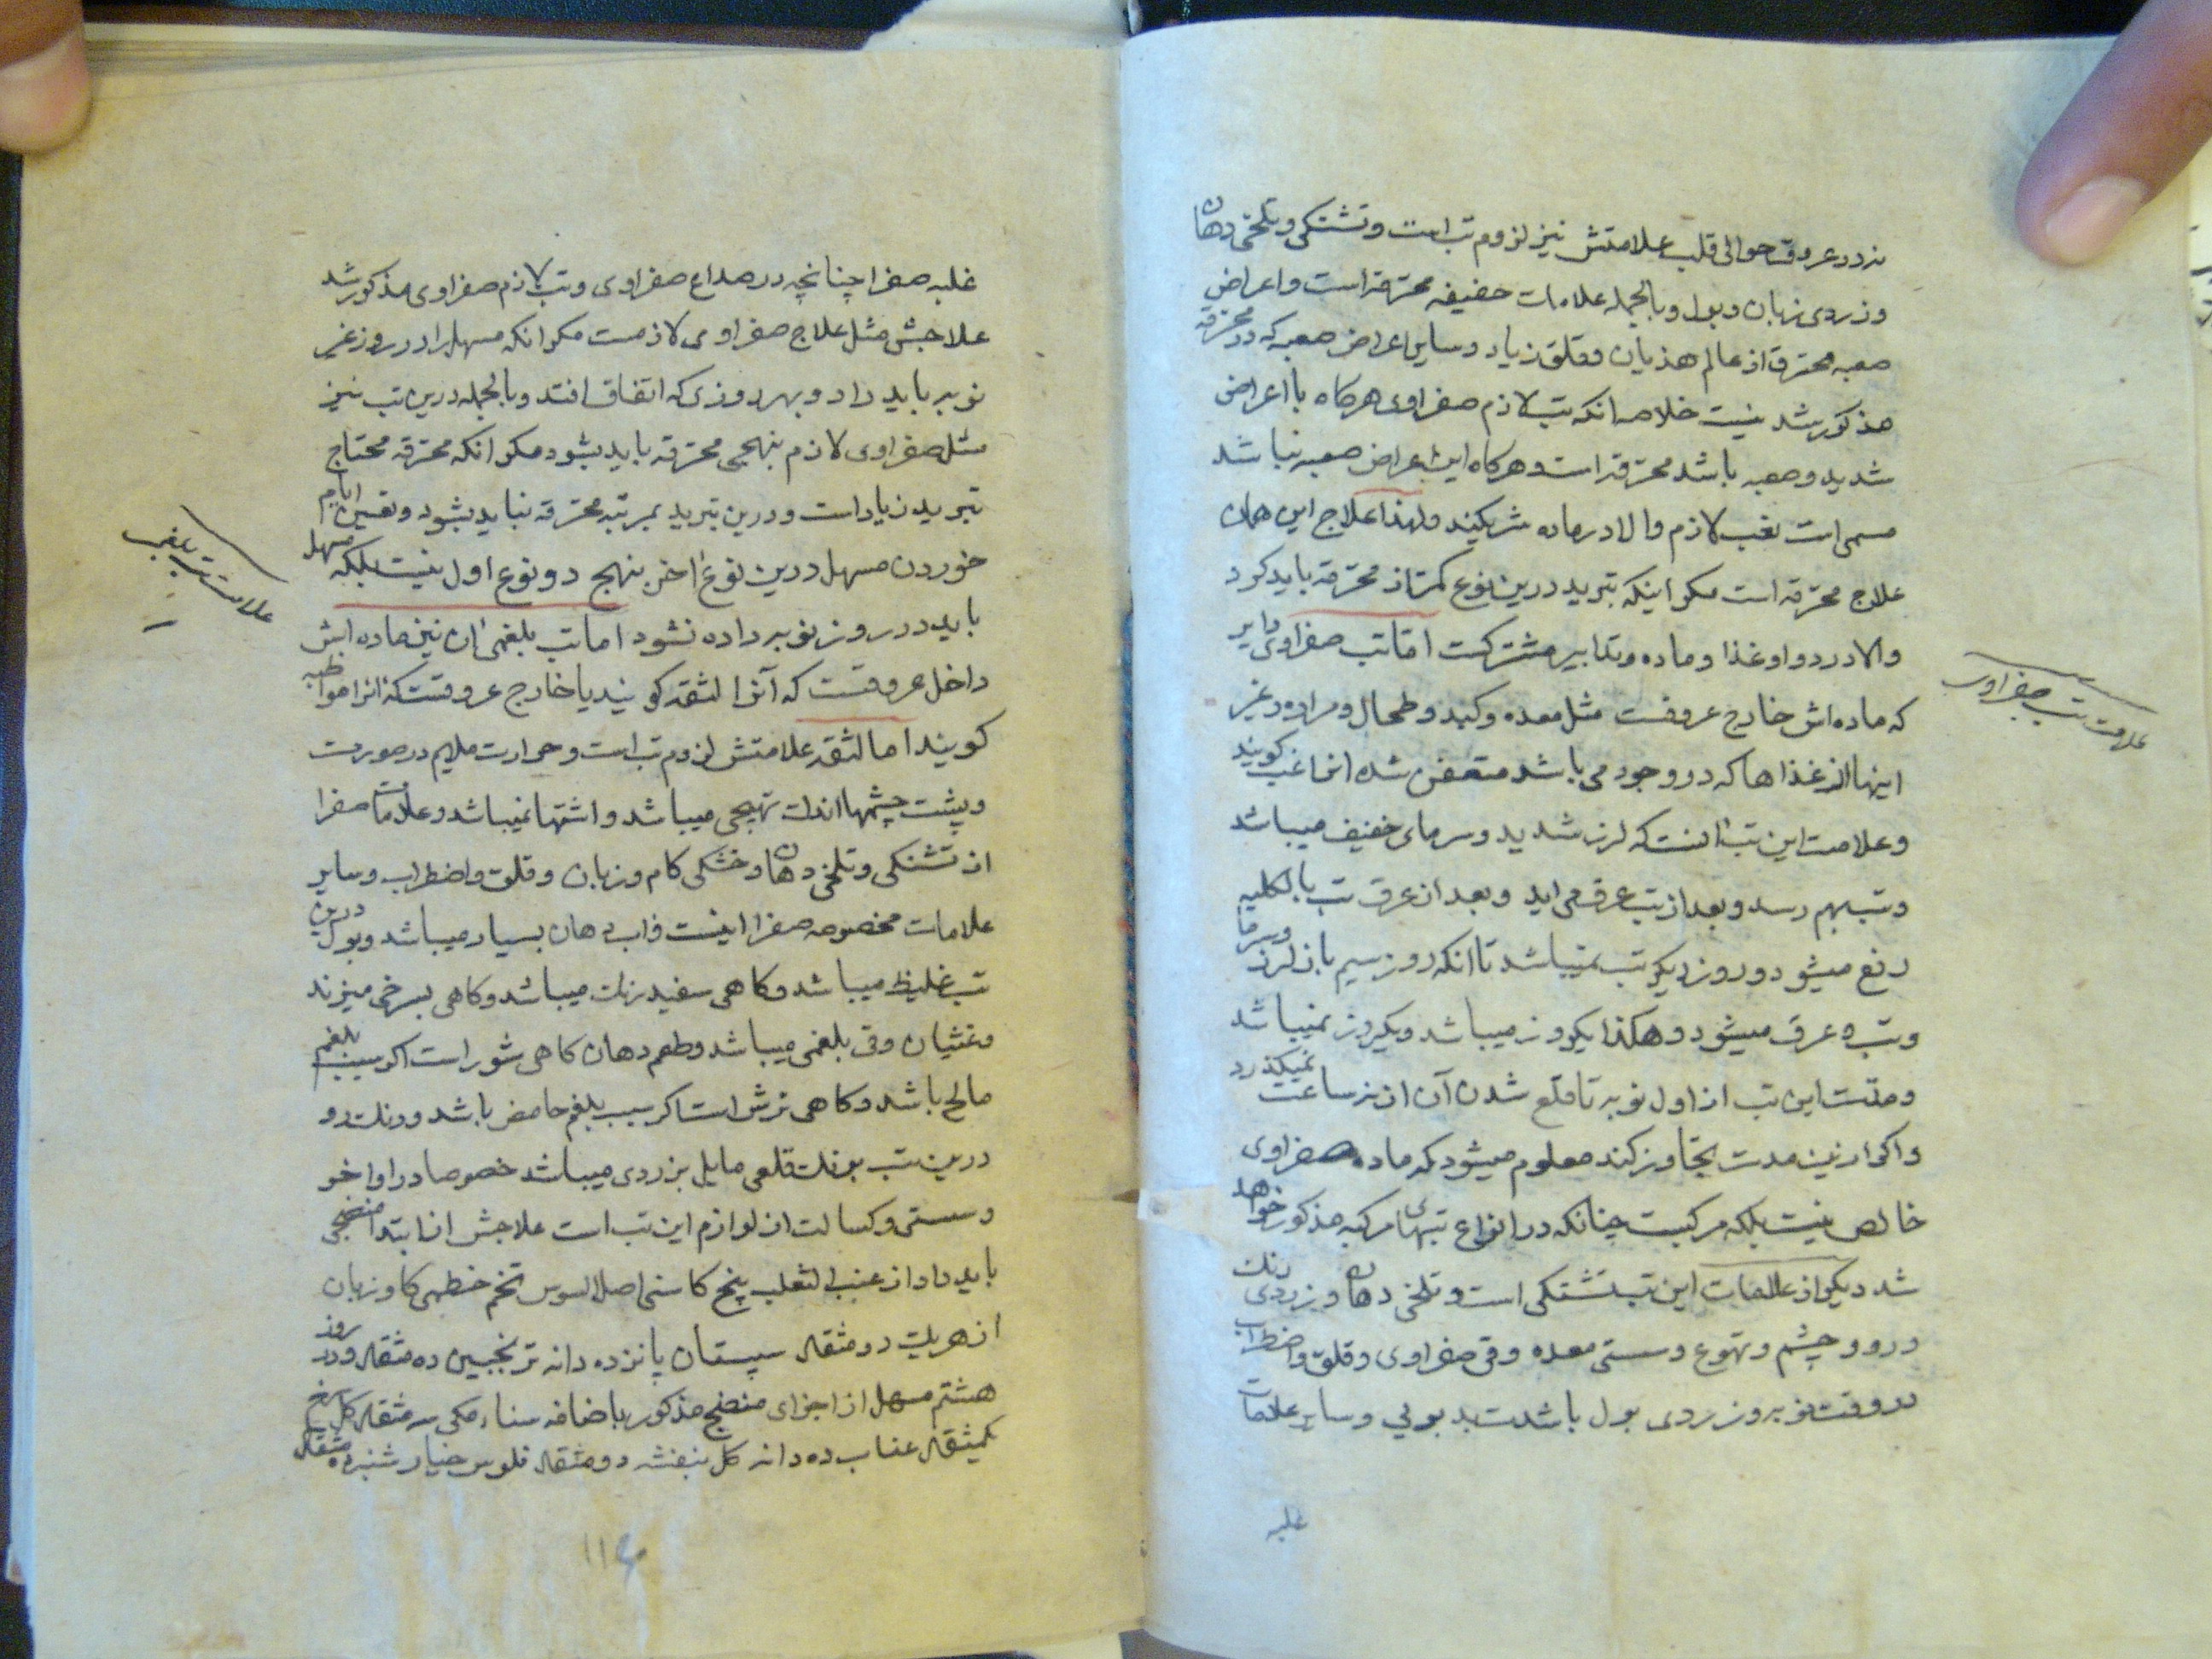 نه در عروق حوالی قلب علامتش نیز لزوم تب است و تشنکی و تلخی دهان
و زردی زبان و بول و بالجمله علامات خفیفه محترقه است و اعراض
صعبه محترقه از عالم هذیان و قلق زیاد و سایر اعراض صعبه که در محترقه
مذکور شد نیست خلاصه انکه تب لازم صفراوی هرکاه با اعراض
شدید و صعبه باشد محترقه است و هرکاه این اعراض صعبه نباشد
مسمی است بغب لازم و الا در ماده شریکند و لهذا علاج این همان
علاج محترقه است مکر اینکه تبرید درین نوع کمتر از محترقه باید کرد
و الا در دوا و غذا و ماده و تدابیر مشترکست اما تب صفراوی دایر
که ماده اش خارج عروقست مثل معده و کبد و طحال و مراره و غیر
اینها از غذاها که در وجود می باشد متعفن شده انرا غب کویند
و علامت این تب انست که لرز شدید و سرمای خفیف میباشد
و تب بهم رسد و بعد از تب عرق می اید و بعد از عرق تب بالکلیه
رفع میشود و روز دیکر تب نمیباشد تا انکه روز سیم باز لرز و سرما
و تب و عرق میشود و هکذا یکروز میباشد و یکروز نمیباشد
و مدت این تب از اول نوبه تا قلع شدن آن از نه ساعت نمیکذرد
و اکر ازین مدت تجاوز کند معلوم میشود که ماده صفراوی
خالص نیست بلکه مرکبست چنانکه در انواع تبهای مرکبه مذکور خواهد
شد دیکر از علامات این تب تشنکی است و تلخی دهان و زردی رنک
در رو و چشم و تهوع و سستی معده و قی صفراوی و قلق و اضطراب
در وقت نوبه و زردی بول باشدت بد بویی و سایر علامات
غلبه
علامت تب صفراوی
غلبه صفرا چنانچه در صداع صفراوی و تب لازم صفراوی مذکور شد
علاجش مثل علاج صفراوی لازمست مکر انکه مسهل را در روز غیر
نوبه باید داد و بهر روزی که اتفاق افتد و بالجمله درین تب نیز
مثل صفراوی لازم بنهجی محترقه باید بشود مکر انکه محترقه محتاج
تبرید زیاد است و درین تبرید بمرتبه محترقه نباید بشود و تعیین ایام
خوردن مسهل درین نوع اخر بنهج دو نوع اول نیست بلکه مسهل
باید در روز نوبه داده نشود اما تب بلغمی ان نیز ماده اش
داخل عروقست که آنرا لثقه کویند یا خارج عروقست که انرا مواظبه
کویند اما لثقه علامتش لزوم تب است و حرارت ملایم در صورت
و پشت چشمها اندک تهیجی میباشد و اشتها نمیباشد و علامات صفرا
از تشنکی و تلخی دهان و خشکی کام و زبان و قلق و اضطراب و سایر
علامات مخصوصه صفرا نیست و اب دهان بسیار میباشد و بول درین
تب غلیظ میباشد و کاهی سفید رنک میباشد و کاهی بسرخی میزند
و غثیان و قی بلغمی میباشد و طعم دهان کاهی شور است اکر سبب بلغم
مالح باشد و کاهی ترش است اکر سبب بلغم حامض باشد و رنک رو
درین تب برنک قلعی مایل بزردی میباشد خصوصا در اواخر
و سستی و کسالت از لوازم این تب است علاجش از ابتدا منضجی
باید داد از عنب الثعلب بیخ کاسنی اصل السوس تخم خطمی کاوزبان
از هریک دو مثقال سپستان پانزده دانه ترنجبین ده مثقال و در روز
هشتم مسهل از اجزای منضج مذکور باضافه سناء مکی سه مثقال کل سرخ
یکمثقال عناب ده دانه کل بنفشه دو مثقال فلوس خیار شنبر ده مثقال
علامت تب بلغمی